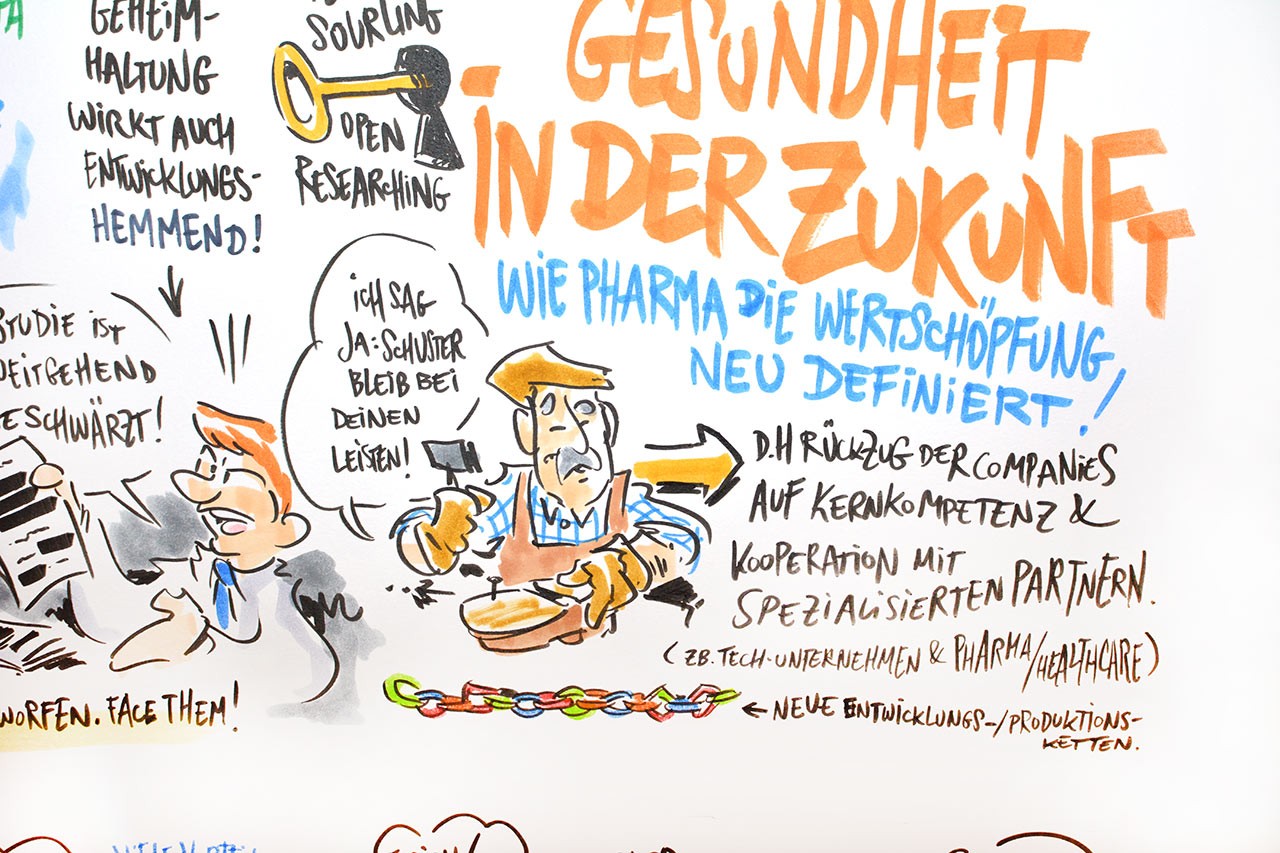 GEHEIM-
HALTUNG
WIRKT AUCH
ENTWICKLUNGS-
HEMMEND!
OPEN
RESEARCHING
GESUNDHEIT
IN DER ZUKUNFT
WIE PHARMA DIE WERTSCHÖPFUNG
NEU DEFINIERT!
STUDIE IST
SCHWÄRZT!
ICH SAG
JA: SCHUSTER
BLEIB BEI
DEINEN
LEISTEN!
D.H RÜCKZUG DER COMPANIES
AUF KERNKOMPETENZ &
KOOPERATION MIT
SPEZIALISIERTEN PARTNERN.
(ZB. TECH-UNTERNEHMEN & PHARMA/HEALTHCARE)
WORFEN. FACE THEM!
← NEUE ENTWICKLUNGS-/PRODUKTIONS-
KETTEN.